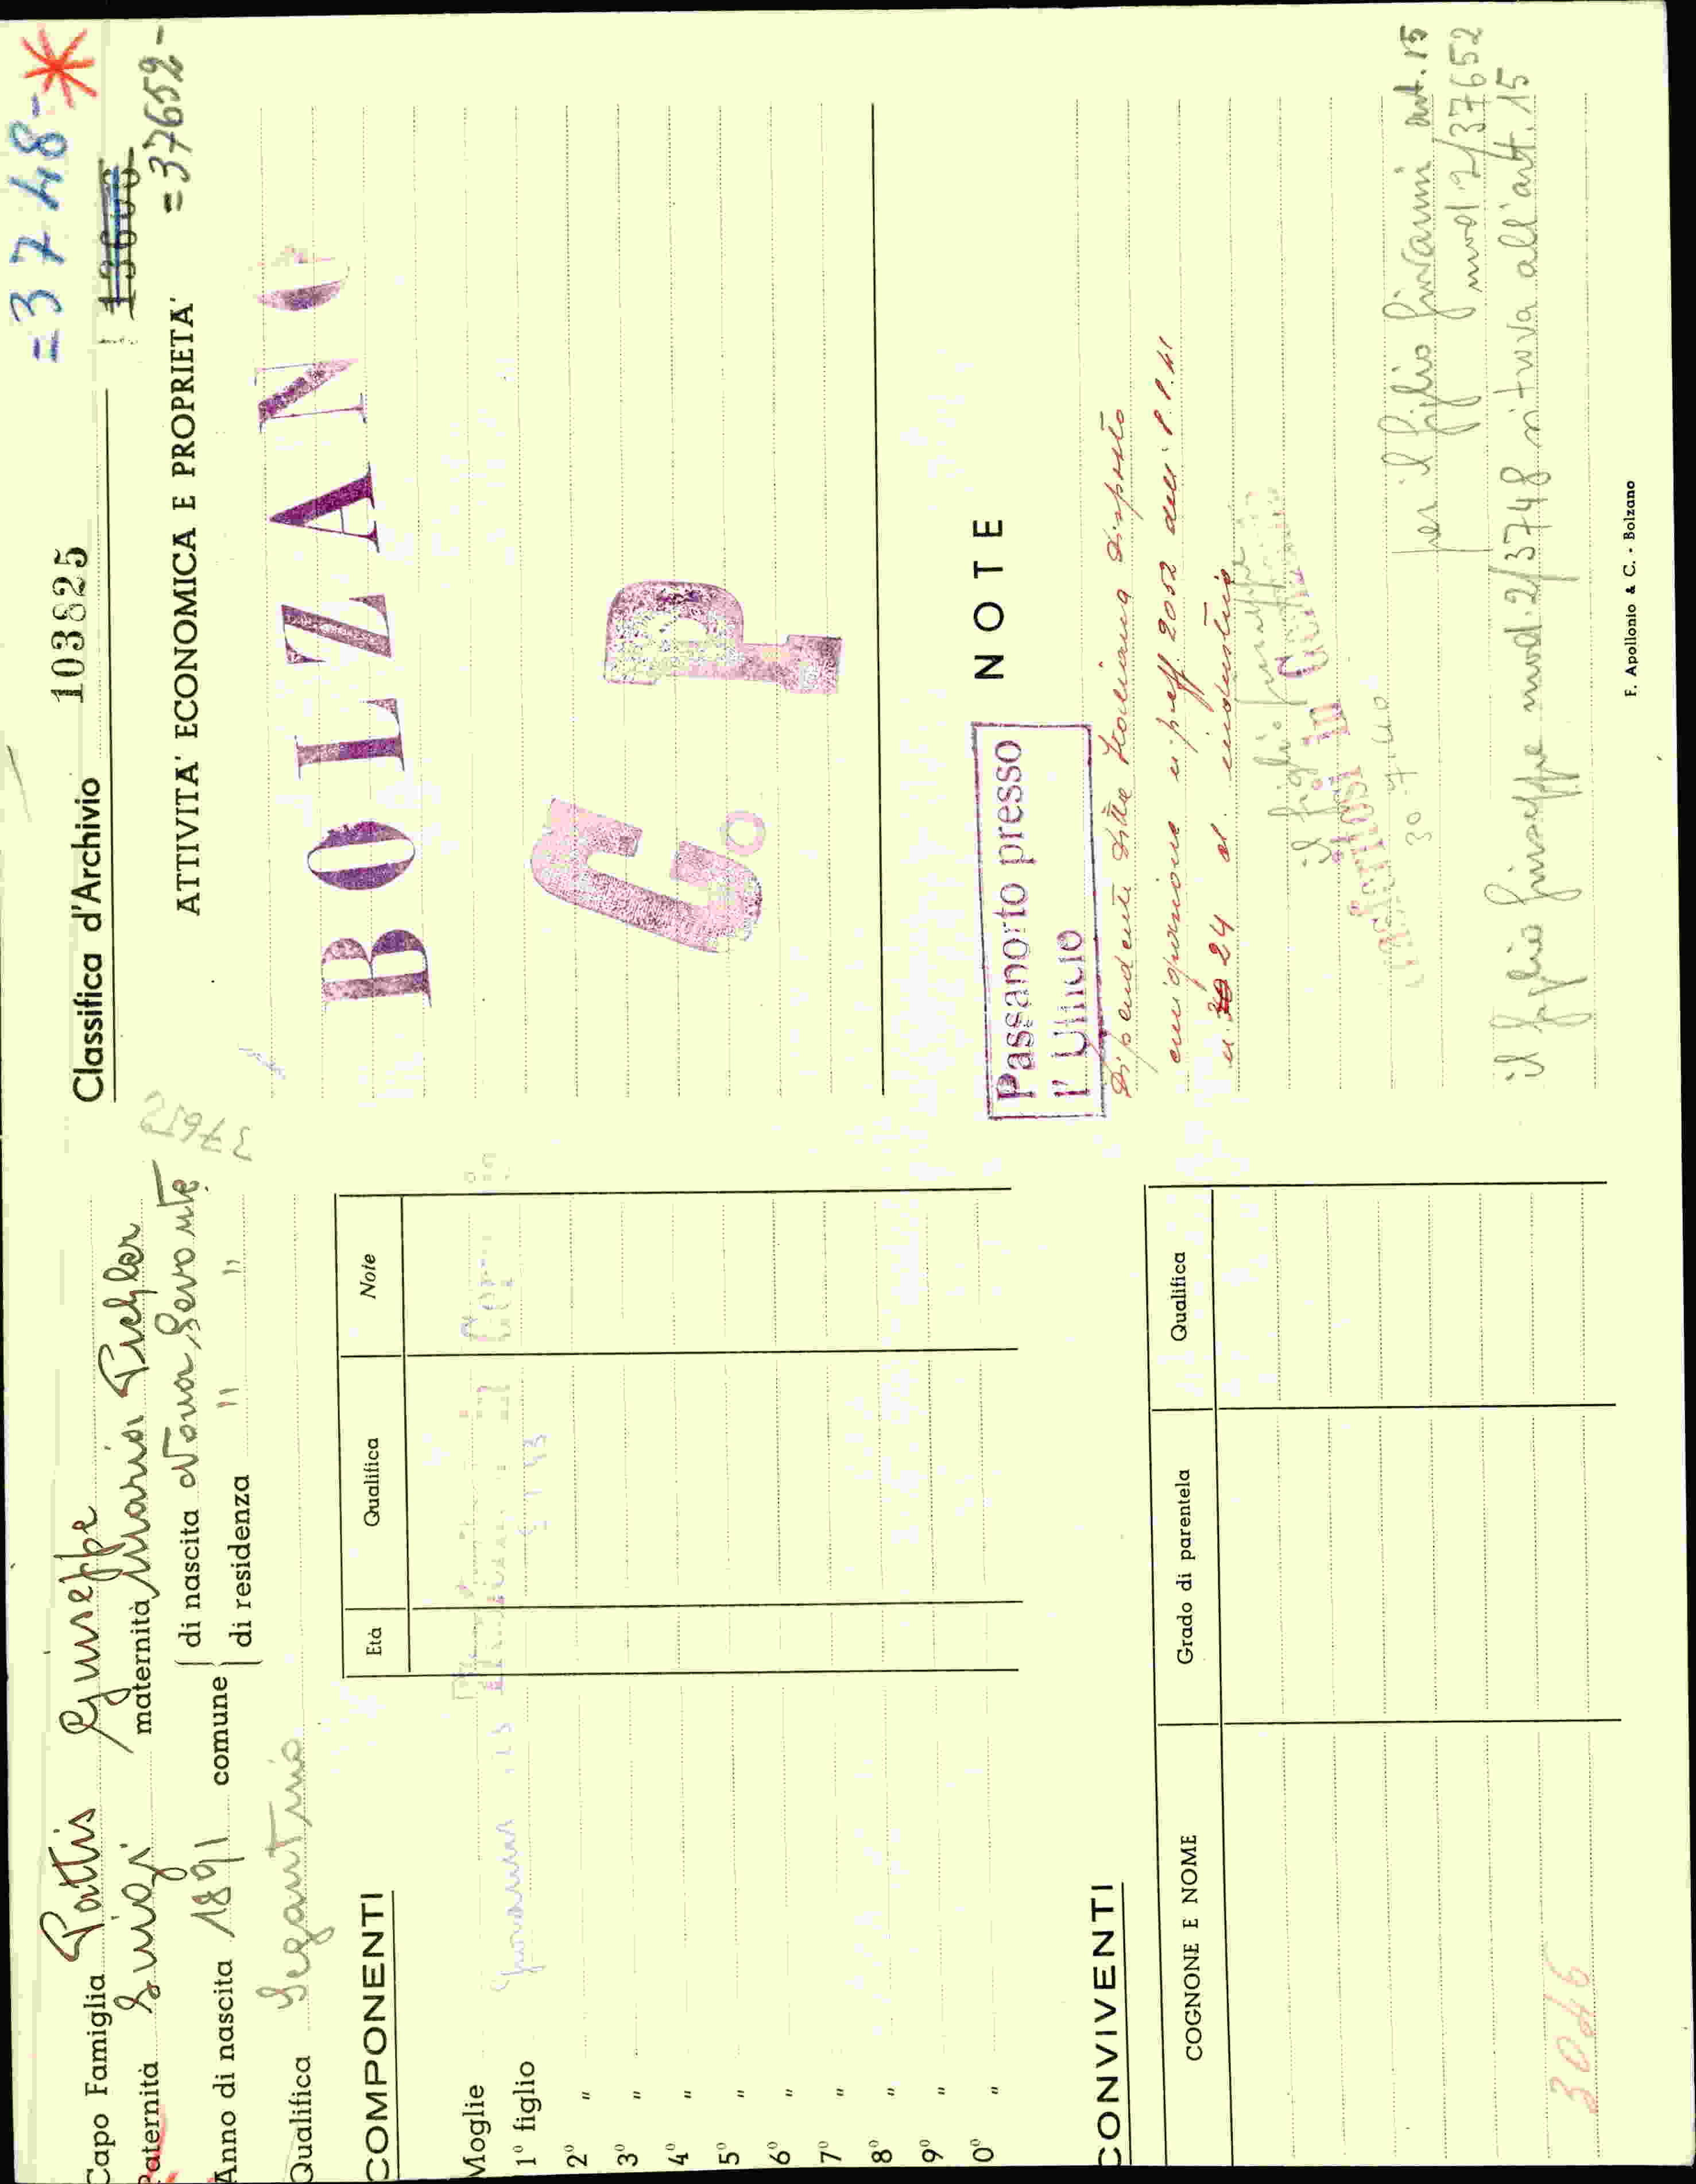 Capo Famiglia Pattis Giuseppe
Paternità Luigi maternità Maria Pichler
Anno di nascita 1891 comune di nascita Nova Levante
di residenza " "
Qualifica Segantino
COMPONENTI
Età Qualifica Note
Moglie
1º figlio Giovanni
2º "
3º "
4º "
5º "
6º "
7º "
8º "
9º "
0º "
CONVIVENTI
COGNONE E NOME Grado di parentela Qualifica
3046
37652
=3748-
Classifica d'Archivio 103825
13600
=37652-
ATTIVITA' ECONOMICA E PROPRIETA'
BOLZANO
G. P.
NOTE
Passaporto presso
l' Ufficio
Dipendente ditta disposto
emigrazione 2052
n. 24
il figlio Giuseppe
trasferitosi in Germania
30-7-40
per il figlio Giovanni art. 15
mod. 2/37652
il figlio Giuseppe mod. 2/3748 si trova all'art. 15
F. Apollonio & C. - Bolzano